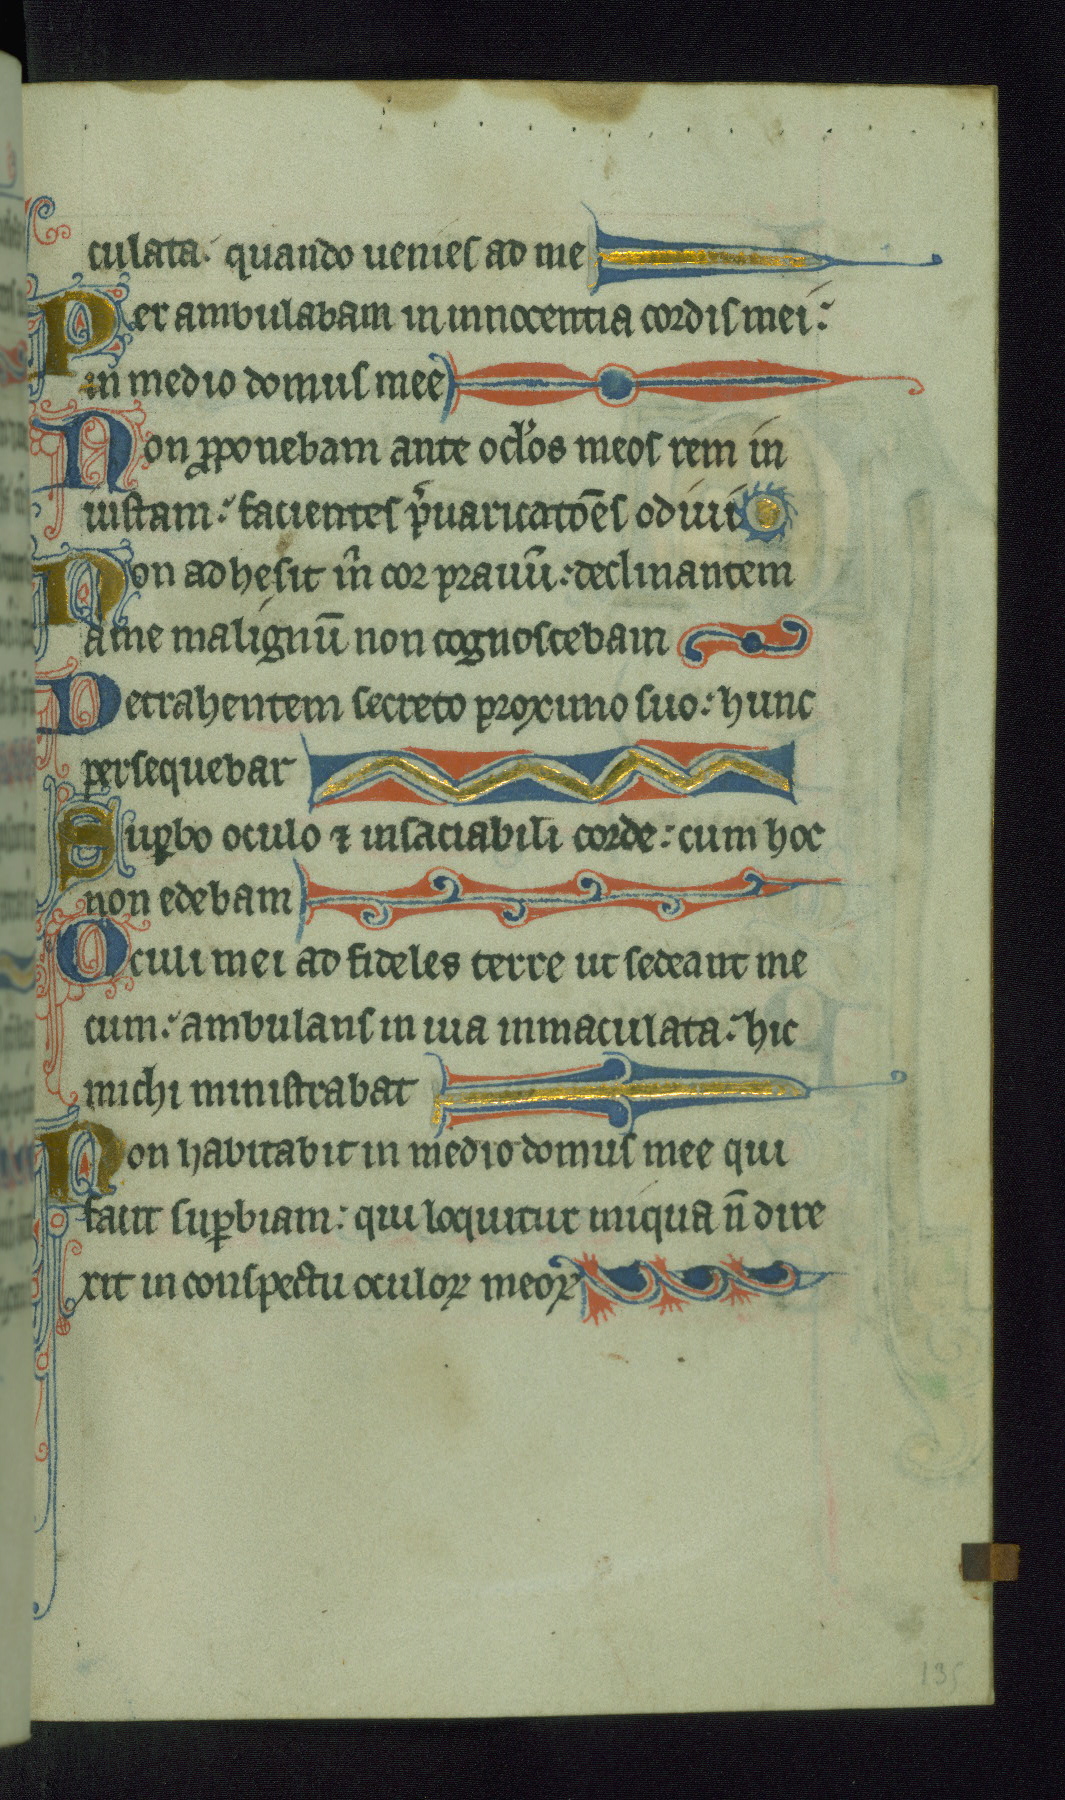 culata· quando uenies ad me
Per ambulabam in innocentia cordis mei:
in medio domus mee
Non ꝓponebam ante ocl̓os meos rem in
iustam: facientes p̓uaricatōes odiui
Non adhesit m̄ cor prauū: declinantem
ame malignū non cognoscebam
Detrahentem secreto proximo suo: hunc
persequebar
Suꝑbo oculo ⁊ insaciabili corde: cum hoc
non edebam
Oculi mei ad fideles terre ut sedeant me
cum: ambulans in uia inmaculata: hic
michi ministrabat
Non habitabit in medio domus mee qui
facit suꝑbiam: qui loquitur iniqua n̄ dire
xit in conspectu oculoꝝ meoꝝ
135